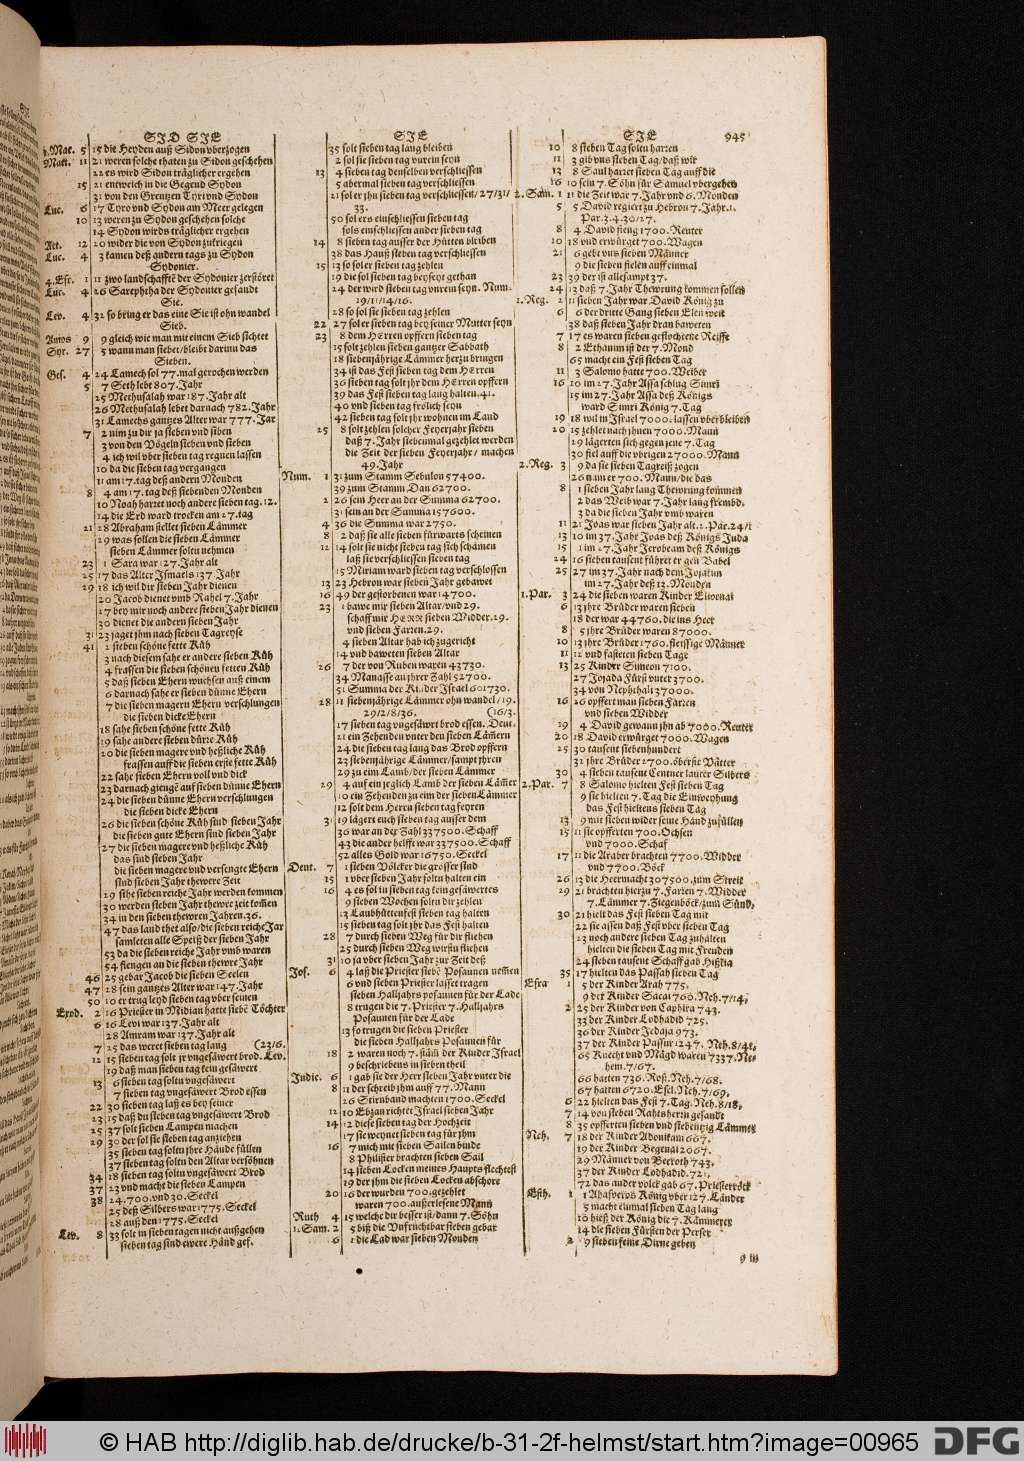 SID SIE
j.Mac. 5 15 die Heyden auß Sidon vberzogen
Matt. 11 21 weren solche thaten zu Sidon geschehen
22 es wird Sidon träglicher ergehen
15 21 entweich in die Gegend Sydon
31 von den Grentzen Tyri vnd Sydon
Luc. 6 17 Tyro vnd Sydon am Meer gelegen
10 13 weren zu Sydon geschehen solche
14 Sydon wirds träglicher ergehen
Act. 12 20 wider die von Sydon zukriegen
Luc. 4 3 kamen deß andern tags zu Sydon
Sydonier.
4.Esr. 1 11 zwo landschafftē der Sydonier zerstöret
Luc. 4 26 Sarephtha der Sydonier gesandt
Sie.
Lev. 4 32 so bring er das eine Sie ist ohn wandel
Sieb.
Amos 9 9 gleich wie man mit einem Sieb sichtet
Syr. 27 5 wann man siebet/bleibt darinn das
Sieben.
Ges. 4 24 Lamech sol 77.mal gerochen werden
5 7 Seth lebt 807.Jahr
25 Methusalah war 187.Jahr alt
26 Methusalah lebet darnach 782.Jahr
31 Lamechs gantzes Alter war 777.Jar
7 2 nim zu dir ja sieben vnd siben
3 von den Vögeln sieben vnd sieben
4 ich wil vber sieben tag regnen lassen
10 da die sieben tag vergangen
11 am 17.tag deß andern Monden
8 4 am 17.tag deß siebenden Monden
10 Noah harret noch andere sieben tag.12.
14 die Erd ward trocken am 27.tag
21 28 Abraham stellet sieben Lämmer
29 was sollen die sieben Lämmer
sieben Lämmer soltu nehmen
23 1 Sara war 127.Jahr alt
25 17 das Alter Ismaels 137.Jahr
29 18 ich wil dir sieben Jahr dienen
20 Jacob dienet vmb Rahel 7.Jahr
27 bey mir noch andere sieben Jahr dienen
30 dienet die andern sieben Jahr
31 23 jaget jhm nach sieben Tagreyse
41 2 sieben schöne fette Küh
3 nach diesen sahe er andere sieben Küh
4 frassen die sieben schönen fetten Küh
5 daß sieben Ehern wuchsen auß einem
6 darnach sahe er sieben dünne Ehern
7 die sieben magern Ehern verschlungen
die sieben dicke Ehern
18 sahe sieben schöne fette Küh
19 sahe andere sieben dürre Küh
20 die sieben magere vnd heßliche Küh
frassen auff die sieben erste fette Küh
22 sahe sieben Ehern voll vnd dick
23 darnach giengē auff sieben dünne Ehern
24 die sieben dünne Ehern verschlungen
die sieben dicke Ehern
26 die sieben schöne Küh sind sieben Jahr
die sieben gute Ehern sind sieben Jahr
27 die sieben magere vnd heßliche Küh
das sind sieben Jahr
die sieben magere vnd versengte Ehern
sind sieben Jahr thewre Zeit
29 sihe sieben reiche Jahr werden kommen
30 werden sieben Jahr thewre zeit kom̄en
34 in den sieben thewren Jahren.36.
47 das land thet also/die sieben reiche Jar
samleten alle Speiß der sieben Jahr
53 da die sieben reiche Jahr vmb waren
54 fiengen an die sieben thewre Jahr
46 25 gebar Jacob die sieben Seelen
47 28 sein gantzes Alter war 147.Jahr
50 10 er trug leyd sieben tag vber seinen
Exod. 2 16 Priester in Midian hatte siebē Töchter
6 16 Levi war 137.Jahr alt
28 Amram war 137.Jahr alt
7 25 das weret sieben tag lang (23/6.
12 15 sieben tag solt jr vngesäwert brod. Lev.
19 daß man sieben tag kein gesäwert
13 6 sieben tag soltu vngesäwert
7 sieben tag vngesäwert Brod essen
22 30 sieben tag laß es bey seiner
23 15 daß du sieben tag vngesäwert Brod
25 37 solt sieben Lampen machen
29 30 der sol sie sieben tag anziehen
35 sieben tag soltu jhre Hände füllen
37 sieben tag soltu den Altar versöhnen
34 18 sieben tag soltu vngesäwert Brod
37 23 vnd macht die sieben Lampen
38 24.700.vnd 30.Seckel
25 deß Silbers war 1775.Seckel
28 auß den 1775.Seckel
Lev. 8 33 solt in sieben tagen nicht außgehen
sieben tag sind ewere Händ gef.
SIE
35 solt sieben tag lang bleiben
2 sol sie sieben tag vnrein seyn
13 4 sieben tag denselben verschliessen
5 abermal sieben tag verschliessen
21 sol er jhn sieben tag verschliessen/27/31/
33.
50 sol ers einschliessen sieben tag
sols einschliessen ander sieben tag
14 8 sieben tag ausser der Hütten bleiben
38 das Hauß sieben tag verschliessen
15 13 so sol er sieben tag zehlen
19 die sol sieben tag beyseyt gethan
24 der wird sieben tag vnrein seyn. Num.
19/11/14/16.
28 so sol sie sieben tag zehlen
22 27 sol er sieben tag bey seiner Mutter seyn
23 8 dem Herren opffern sieben tag
15 solt zehlen sieben gantzer Sabbath
18 siebenjährige Lämmer herzu bringen
34 ist das Fest sieben tag dem Herren
36 sieben tag solt jhr dem HErren opffern
39 das Fest sieben tag lang halten.41.
40 vnd sieben tag frölich seyn
42 sieben tag solt jhr wohnen im Laub
25 8 solt zehlen solcher Feyerjahr sieben
daß 7.Jahr siebenmal gezehlet werden
die Zeit der sieben Feyerjahr/ machen
49.Jahr
Num. 1 31 zum Stamm Sebulon 57400.
39 zum Stamm Dan 62700.
2 26 sein Heer an der Summa 62700.
31 sein an der Summa 157600.
4 36 die Summa war 2750.
8 2 daß sie alle sieben fürwarts scheinen
12 14 solt sie nicht sieben tag sich schämen
laß sie verschliessen sieben tag
15 Miriam ward sieben tag verschlossen
13 23 Hebron war sieben Jahr gebawet
16 49 der gestorbenen war 14700.
23 1 bawe mir sieben Altar/vnd 29.
schaff mir HERR sieben Widder.29.
vnd sieben Farren.29.
4 sieben Altar hab ich zugericht
14 vnd bawetten sieben Altar
26 7 der von Ruben waren 43730.
34 Manasse an jhrer Zahl 52700.
51 Summa der Kinder Israel 601730.
28 11 siebenjährige Lämmer ohn wandel/19.
29/2/8/36. (16/3.
17 sieben tag vngesäwrt brod essen. Deut.
21 ein Zehenden vnter den sieben Läm̄ern
24 die sieben tag lang das Brod opffern
23 siebenjährige Lämmer/sampt jhren
29 zu eim Lamb/der sieben Lämmer
29 4 auf ein jeglich Lamb der sieben Läm̄er
10 ein Zehenden zu eim der sieben Lämmer
12 solt dem Herrn sieben tag feyren
31 19 lägert euch sieben tag ausser dem
36 war an der Zahl 337500.Schaff
43 die ander helfft war 337500.Schaff
52 alles Gold war 16750.Seckel
Deut. 7 1 sieben Völcker die grösser sind
15 1 vber sieben Jahr soltu halten ein
16 4 es sol in sieben tag kein gesäwertes
9 sieben Wochen soltu dir zehlen
13 Laubhüttenfest sieben tag halten
15 sieben tag solt jhr das Fest halten
28 7 durch sieben Weg für dir fliehen
25 durch sieben Weg wirstu fliehen
31 10 ja vber sieben Jahr zur Zeit deß
Jos. 6 4 laß die Priester siebē Posaunen nem̄en
6 vnd sieben Priester lasset tragen
sieben Halljahrs posaunen für der Lade
8 trugen die 7.Priester 7.Halljahrs
Posaunen für der Lade
13 so trugen die sieben Priester
die sieben Halljahrs Posaunen für
18 2 waren noch 7.stäm̄ der Kinder Israel
9 beschriebens in sieben theil
Judic. 6 1 gab sie der Herr sieben Jahr vnter die
8 11 der schreib jhm auff 77.Mann
26 Stirnband machten 1700.Seckel
12 10 Ebzan richtet Israel sieben Jahr
14 12 diese sieben tag der Hochzeit
17 sie weynet sieben tag für jhm
16 7 mich mit sieben Sailen binde
8 Philister brachten sieben Sail
14 sieben Locken meines Haupts flechtest
19 der jhm die sieben Locken abschore
20 16 der wurden 700.gezehlet
waren 700.außerlesene Mann
Ruth 4 15 welche dir besser ist/dann 7.Söhn
1.Sam. 2 5 biß die Vnfruchtbar sieben gebar
6 1 die Lad war sieben Monden
SIE 945
10 8 sieben Tag soltu harren
11 3 gib vns sieben Tag/daß wir
13 8 Saul harret sieben Tag auff die
16 10 sein 7.Söhn für Samuel vbergehen
2.Sam. 1 11 die Zeit war 7.Jahr vnd 6.Monden
5 5 David regiert zu Hebron 7.Jahr.1.
Par.3.4.30/27.
8 4 David fieng 1700.Reuter
10 18 vnd erwürget 700.Wagen
21 6 gebt vns sieben Männer
9 die sieben fielen auff einmal
23 39 der ist allesampt 37.
24 13 daß 7.Jahr Thewrung kommen sollen
1.Reg. 2 11 sieben Jahr war David König zu
6 6 der dritte Gang sieben Elen weit
38 daß sieben Jahr dran baweten
7 17 es waren sieben geflochtene Reiffe
8 2 Ethanim ist der 7.Mond
65 macht ein Fest sieben Tag
11 3 Salomo hatte 700.Weiber
16 10 im 27.Jahr Assa schlug Simri
15 im 27.Jahr Assa deß Königs
ward Simri König 7.Tag
19 18 wil in Israel 7000.lassen vberbleiben
20 15 zehlet nach jhnen 7000.Mann
29 lägerten sich gegen jene 7.Tag
30 fiel auff die vbrigen 27000.Mann
2.Reg. 3 9 da sie sieben Tagreiß zogen
26 nam er 700.Mann/die das
8 1 sieben Jahr lang Thewrung kommen
2 das Weib war 7.Jahr lang frembd.
3 da die sieben Jahr vmb waren
11 21 Joas war sieben Jahr alt.2.Par.24/1
13 10 im 37.Jahr Joas deß Königs Juda
15 1 im 27.Jahr Jerobeam deß Königs
24 16 sieben tausent führet er gen Babel
25 27 im 37.Jahr nach dem Jojakim
im 27.Jahr deß 12.Monden
1.Par. 3 24 die sieben waren Kinder Elioenai
6 13 jhre Brüder waren sieben
18 der war 44760.die ins Heer
8 5 jhre Brüder waren 87000.
10 13 jhre Brüder 1760.fleissige Männer
11 12 vnd fasteten sieben Tage
13 25 Kinder Simeon 7100.
27 Jojada Fürst vnter 3700.
34 von Nephthali 37000.
16 26 opffert man sieben Farren
vnd sieben Widder
19 4 David gewann jhn ab 7000.Reuter
20 18 David erwürget 7000.Wagen
25 30 tausent siebenhundert
31 jhre Brüder 2700.öberste Vätter
30 4 sieben tausent Centner lauter Silbers
2.Par. 7 8 Salomo hielten Fest sieben Tag
9 sie hielten 7.Tag die Einweyhung
das Fest hieltens sieben Tag
13 9 mit sieben wider seine Händ zufüllen
15 11 sie opfferten 700.Ochsen
vnd 7000.Schaf
17 11 die Araber brachten 7700.Widder
vnd 7700.Böck
26 13 die Heermacht 307500.zum Streit
29 21 brachten hierzu 7.Farren 7.Widder
7.Lämmer 7.Ziegenböck/zum Sünd.
30 21 hielt das Fest sieben Tag mit
22 sie assen daß Fest vber sieben Tag
23 noch andere sieben Tag zuhalten
hielten die sieben Tag mit Freuden
24 sieben tausent Schaff gab Hißkia
35 17 hielten das Passah sieben Tag
Esra 1 5 der Kinder Arah 775.
9 der Kinder Sacai 760.Neh.7/14.
2 25 der Kinder von Caphira 743.
33 der Kinder Lodhadid 725.
36 der Kinder Jedaja 973.
37 der Kinder Passur 1247. Neh.8/41.
65 Knecht vnd Mägd waren 7337.Ne-
hem.7/67.
66 hatten 736.Roß.Neh.7/68.
67 hatten 6720.Esel.Neh.7/69.
6 22 hielten das Fest 7.Tag.Neh.8/18.
7 14 von sieben Rahtsherrn gesandt
8 35 opfferten sieben vnd siebentzig Lämmer
Neh. 7 18 der Kinder Adonikam 667.
19 der Kinder Begenai 2067.
29 Männer von Beeroth 743.
37 der Kinder Lodhadid.721.
72 das ander volck gab 67.Priesterröck
Esth. 1 1 Ahasveros König vber 127.Länder
5 macht einmal sieben Tag lang
10 hieß der König die 7.Kämmerer
14 die sieben Fürsten der Perser
2 9 sieben feine Dirne geben
9 iij
© HAB http://diglib.hab.de/drucke/b-31-2f-helmst/start.htm?image=00965
DFG